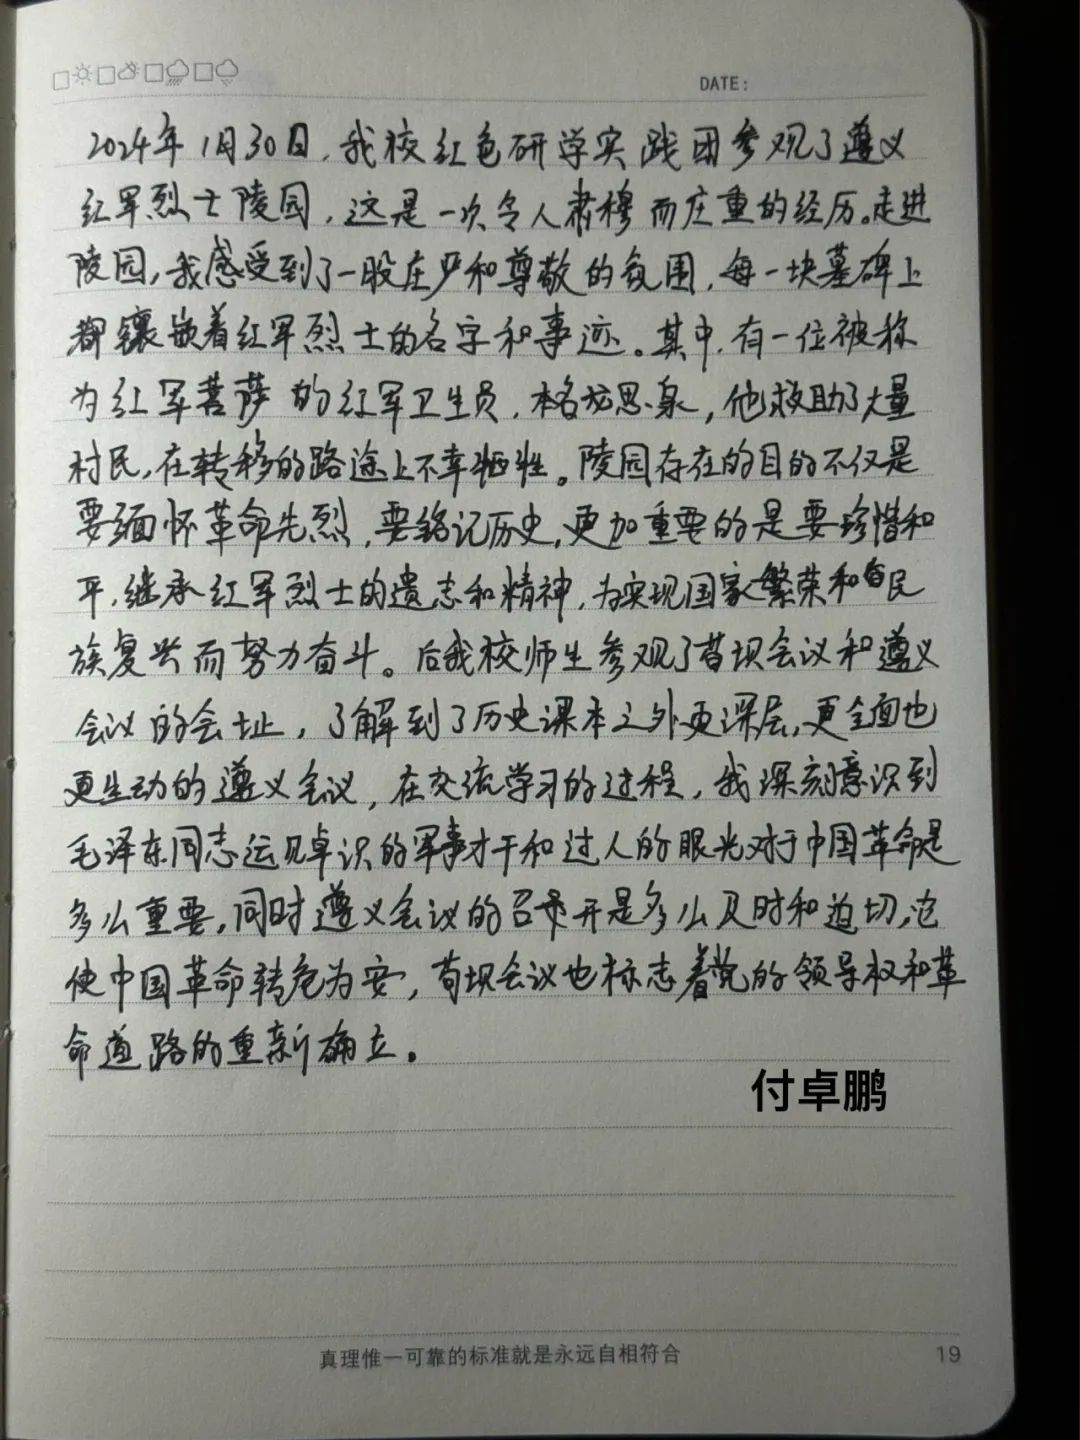 DATE:
2024年1月30日，我校红色研学实践团参观了遵义
红军烈士陵园，这是一次令人肃穆而庄重的经历。走进
陵园，我感受到了一股庄严和尊敬的氛围，每一块墓碑上
都镶嵌着红军烈士的名字和事迹。其中，有一位被称
为红军菩萨的红军卫生员，本名龙思泉，他救助了大量
村民，在转移的路途上不幸牺牲。陵园存在的目的不仅是
要缅怀革命先烈，要铭记历史，更加重要的是要珍惜和
平，继承红军烈士的遗志和精神，为实现国家繁荣和民
族复兴而努力奋斗。后我校师生参观了苟坝会议和遵义
会议的会址，了解到了历史课本之外更深层，更全面也
更生动的遵义会议，在交流学习的过程，我深刻意识到
毛泽东同志远见卓识的军事才干和过人的眼光对于中国革命是
多么重要，同时遵义会议的召开是多么及时和迫切，它
使中国革命转危为安，苟坝会议也标志着党的领导权和革
命道路的重新确立。
付卓鹏
真理惟一可靠的标准就是永远自相符合
19